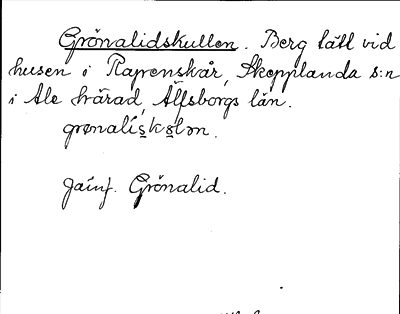 Grönalidskullen. Berg tätt vid
husen i Ravenskår, Skepplanda s:n
i Ale härad, Älfsborgs län.
grønaliskolən.
Jämf. Grönalid.